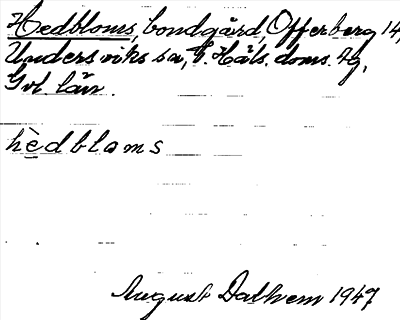 Hedbloms, bondgård, Offerberg 14,
Undersviks sn, V. Häls. doms. tg,
Gvl. län.
hèdbloms
August Dalhem 1947